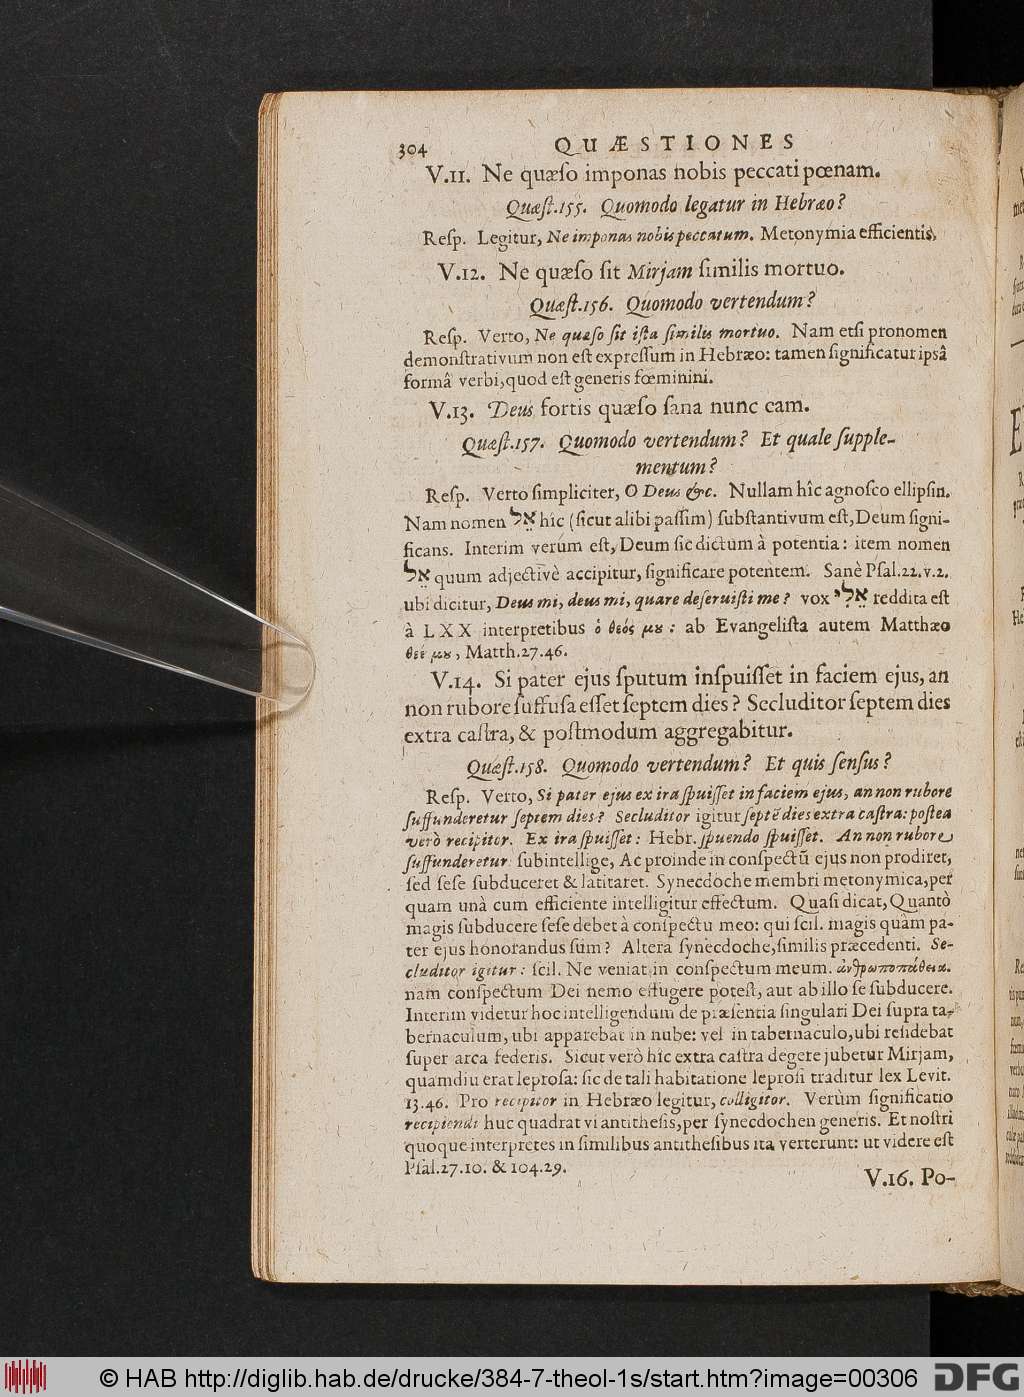 304 QUÆSTIONES
V.11. Ne quæſo imponas nobis peccati pœnam.
Quæſt.155. Quomodo legatur in Hebræo?
Reſp. Legitur, Ne imponas nobis peccatum. Metonymia efficientis.
V.12. Ne quæſo ſit Mirjam ſimilis mortuo.
Quæſt.156. Quomodo vertendum?
Reſp. Verto, Ne quæſo ſit iſta ſimilis mortuo. Nam etſi pronomen
demonſtrativum non eſt expreſſum in Hebræo: tamen ſignificatur ipsâ
formâ verbi, quod eſt generis fœminini.
V.13. Deus fortis quæſo ſana nunc eam.
Quæſt.157. Quomodo vertendum? Et quale ſupple-
mentum?
Reſp. Verto ſimpliciter, O Deus &c. Nullam hîc agnoſco ellipſin.
Nam nomen אֵל hîc (ſicut alibi paſſim) ſubſtantivum eſt, Deum ſigni-
ficans. Interim verùm eſt, Deum ſic dictum à potentia: item nomen
אֵל quum adjectivè accipitur, ſignificare potentem. Sanè Pſal.22.v.2.
ubi dicitur, Deus mi, deus mi, quare deſeruiſti me? vox אֵלִי reddita eſt
à LXX interpretibus ὁ θεός μου: ab Evangeliſta autem Matthæo
θεέ μου, Matth.27.46.
V.14. Si pater ejus ſputum inſpuiſſet in faciem ejus, an
non rubore ſuffuſa eſſet ſeptem dies? Secluditor ſeptem dies
extra caſtra, & poſtmodum aggregabitur.
Quæſt.158. Quomodo vertendum? Et quis ſenſus?
Reſp. Verto, Si pater ejus ex ira ſpuiſſet in faciem ejus, an non rubore
ſuffunderetur ſeptem dies? Secluditor igitur ſeptē dies extra caſtra: poſtea
verò recipitor. Ex ira ſpuiſſet: Hebr. ſpuendo ſpuiſſet. An non rubore
ſuffunderetur: ſubintellige, Ac proinde in conſpectū ejus non prodiret,
ſed ſeſe ſubduceret & latitaret. Synecdoche membri metonymica, per
quam unà cum efficiente intelligitur effectum. Quaſi dicat, Quantò
magis ſubducere ſeſe debet à conſpectu meo: qui ſcil. magis quàm pa-
ter ejus honorandus ſum? Altera ſynecdoche, ſimilis præcedenti. Se-
cluditor igitur: ſcil. Ne veniat in conſpectum meum. ἀνθρωποπάθεια.
nam conſpectum Dei nemo effugere poteſt, aut ab illo ſe ſubducere.
Interim videtur hoc intelligendum de præſentia ſingulari Dei ſupra ta-
bernaculum, ubi apparebat in nube: vel in tabernaculo, ubi reſidebat
ſuper arca fœderis. Sicut verò hîc extra caſtra degere jubetur Mirjam,
quamdiu erat leproſa: ſic de tali habitatione leproſi traditur lex Levit.
13.46. Pro recipitor in Hebræo legitur, colligitor. Verùm ſignificatio
recipiendi huc quadrat vi antitheſis, per ſynecdochen generis. Et noſtri
quoque interpretes in ſimilibus antitheſibus ita verterunt: ut videre eſt
Pſal.27.10. & 104.29.
V.16. Po-
© HAB http://diglib.hab.de/drucke/384-7-theol-1s/start.htm?image=00306
DFG